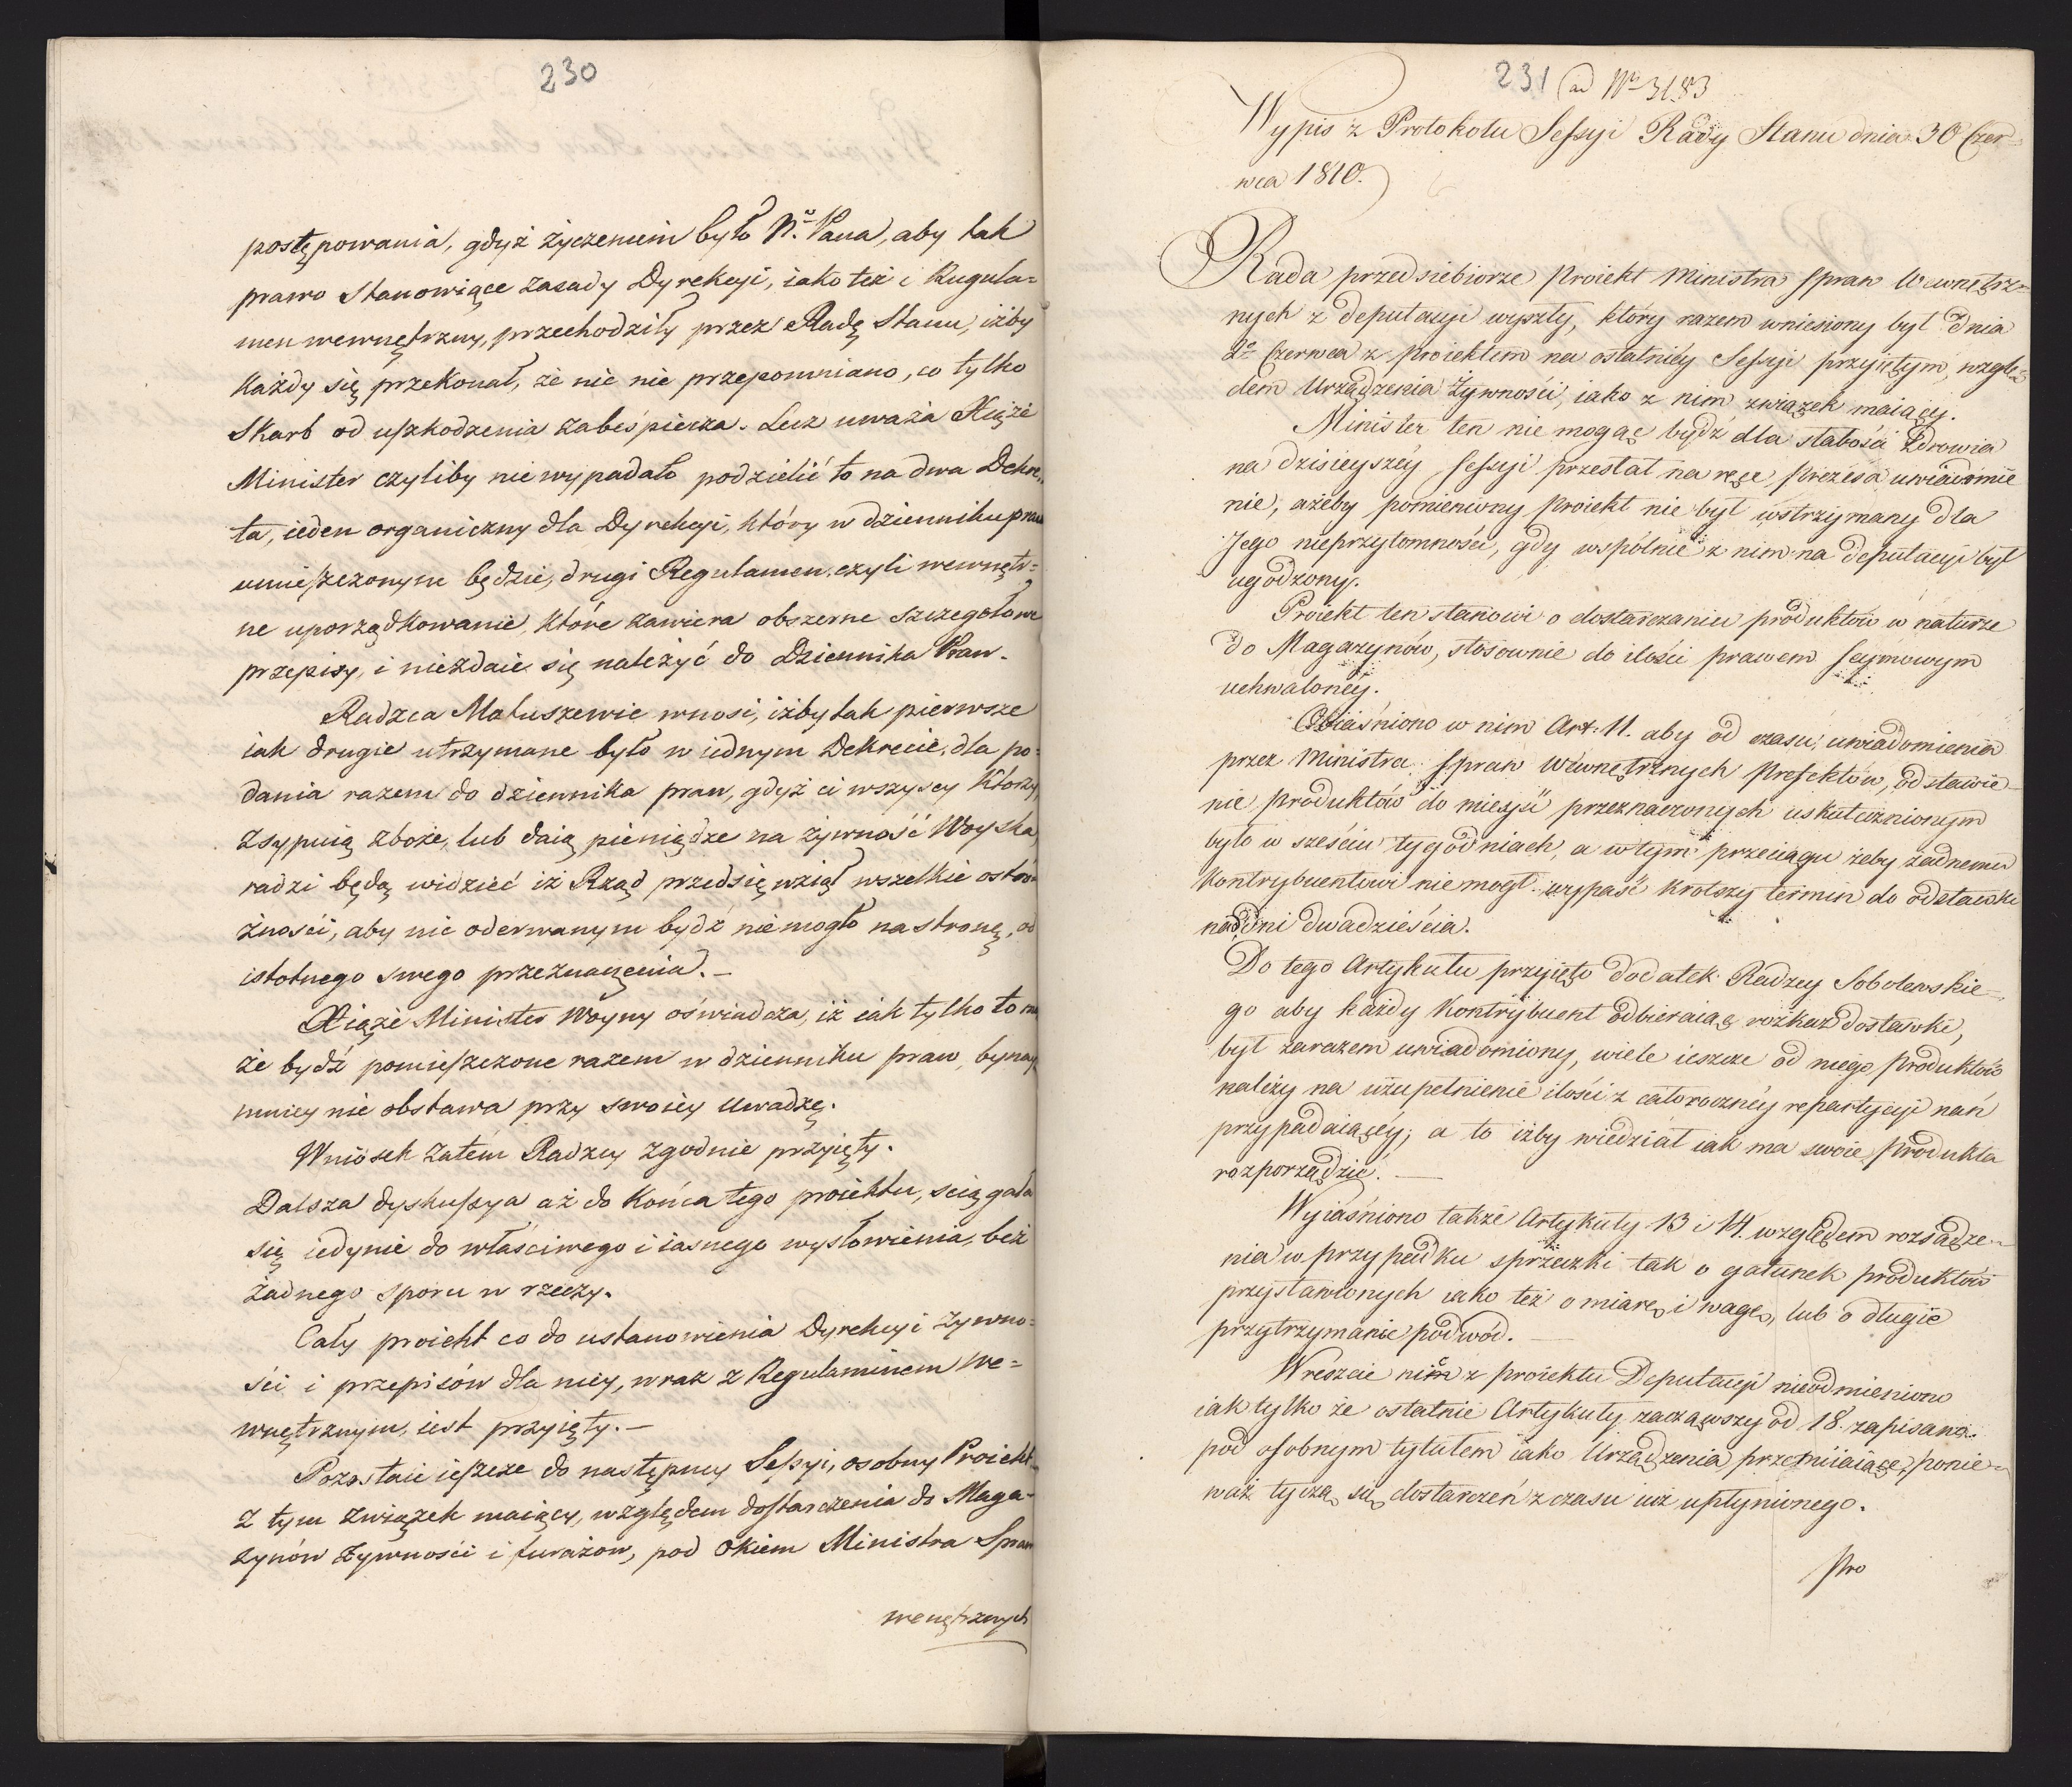 230
postępowania, gdyż życzeniem było N.º Pana, aby tak
prawo stanowiące zasady Dyrekcyi, iako też i Regula=
men wewnętrzny, przechodziły przez Radę Stanu, iżby
każdy się przekonał, że nic nie przepomniano, co tylko
Skarb od uszkodzenia zabeśpiecza. Lecz uważa Xiąże
Minister czyliby nie wypadało podzielić to na dwa Dekre„
ta, ieden organiczny dla Dyrekcyi, który w dzienniku praw
umieszczonym będzie, drugi Regulamen, czyli wewnętr=
ne uporządkowanie, które zawiera obszerne szczegółowe
przepisy, i niezdaie się należyć do Dziennika Praw.
Radzca Matuszewic wnosi, iżby tak pierwsze
iak drugie utrzymane było w iednym Dekrecie, dla po=
dania razem do dziennika praw, gdyż ci wszyscy którzy
zsypuią zboże, lub daią pieniądze na żywność Woyska,
radzi będą widzieć iż Rząd przedsięwziął wszelkie ostró=
żności, aby nic oderwanym bydź nie mogło na stronę, od
istotnego swego przeznaczenia. —
Xiąże Minister Woyny oświadcza, iż iak tylko to mo
że bydź pomieszczone razem w dzienniku praw, bynay
mniey nie obstawa przy swoiey uwadze.
Wniósek zatém Radzcy zgodnie przyięty.
Dalsza dyskussya aż do końca tego proiektu, ściągała
się iedynie do właściwego i iasnego wysłowienia, bez
żadnego sporu w rzeczy.
Cały proiekt co do ustanowienia Dyrekcyi żywno=
ści i przepisów dla niey, wraz z Regulaminem we=
wnętrznym, iest przyięty. —
Pozostaie ieszcze do następney Sessyi, osobny Proiekt
z tym związek maiący, względem dostarczenia do Maga=
zynów żywności i furażów, pod okiem Ministra Spraw
wenętrznych
231 ad Nº 3183
Wypis z Protokołu Sessyi Rady Stanu dnia 30 Czer=
wca 1810.
Rada przedsiebiorze Proiekt Ministra Spraw Wewnętrz=
nych z deputacyi wyszły, który razem wniesiony był dnia
2º Czerwca z proiektem na ostatniéy Sessyi przyiętym, wzglę=
dem Urządzenia Żywności, iako z nim związek maiący.
Minister ten nie mogąc bydź dla słabości zdrowia
na dzisieyszéy Sessyi przesłał na ręce Prezesa uwiadomie
nie, ażeby pomieniony Proiekt nie był wstrzymany dla
Jego nieprzytomności, gdy wspólnie z nim na deputacyi był
ugodzony.
Proiekt ten stanowi o dostarczaniu produktów w naturze
do Magazynów, stósownie do ilości prawem Seymowym
uchwalonéy.
Obiaśniono w nim Art. 11. aby od czasu uwiadomienia
przez Ministra Spraw Wewnętrznych Prefektów, odstawie
nie produktów do mieysc przeznaczonych uskutecznionym
było w sześciu tygodniach, a w tym przeciągu żeby żadnemu
kontrybuentowi nie mogł wypaść krotszy termin do odstawki
nad dni dwadzieścia.
Do tego Artykułu przyięto dodatek Radzcy Sobolewskie=
go aby każdy Kontrybuent odbieraiąc rozkaz dostawki,
był zarazem uwiadomiony, wiele ieszcze od niego produktów
należy na uzupełnienie ilości z całoroczney repartycyi nań
przypadaiącéy; a to iżby wiedział iak ma swoie Produkta
rozporządzić. —
Wyiaśniono także Artykuły 13 i 14. względem rozsądze=
nia w przypadku sprzeczki tak o gatunek produktów
przystawionych iako też o miarę i wagę, lub o długie
przytrzymanie podwód. —
Wreszcie nic z proiektu Deputacyi nieodmieniono
iak tylko że ostatnie Artykuły zacząwszy od 18. zapisano
pod osobnym tytułem iako Urządzenia przemiiaiące, ponie=
waż tyczą się dostarczeń z czasu iuż upłynionego.
Pro